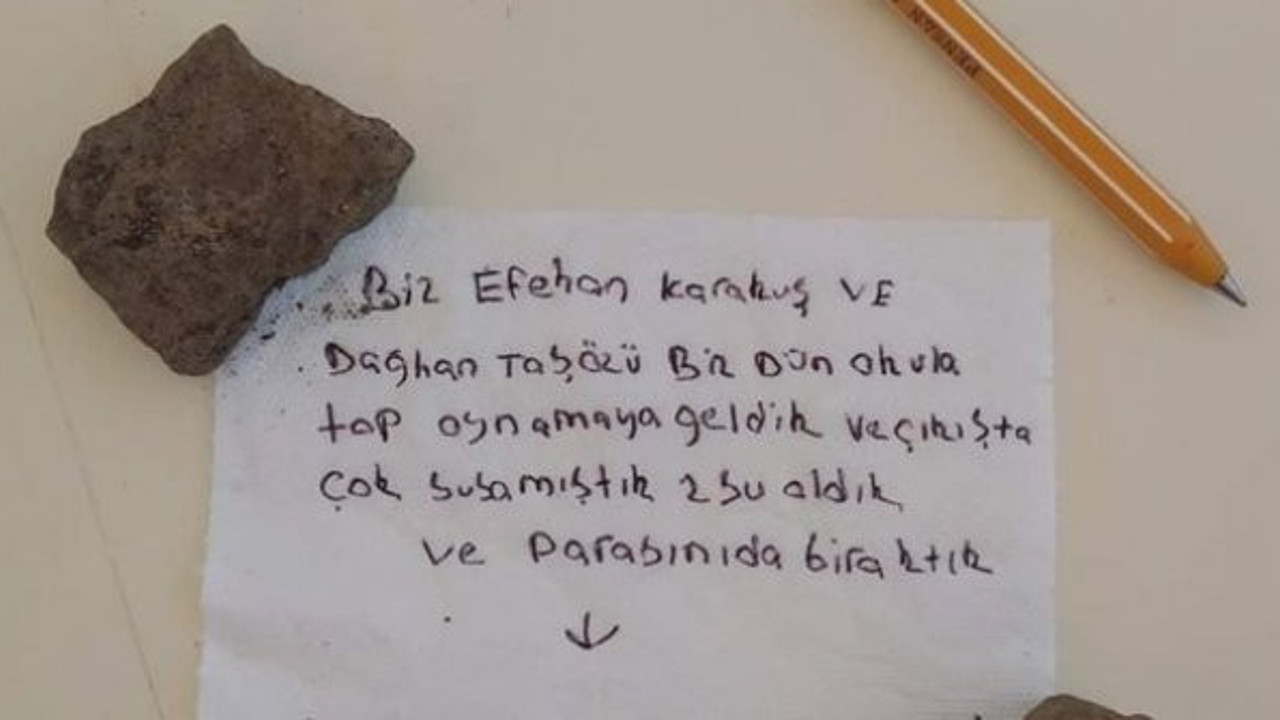 PENSAN
Biz Efehan Karakuş VE
Dağhan Taşözü Biz Dün okula
top oynamaya geldik ve çıkışta
çok susamıştık 2 su aldık
ve parasınıda bıraktık
↓